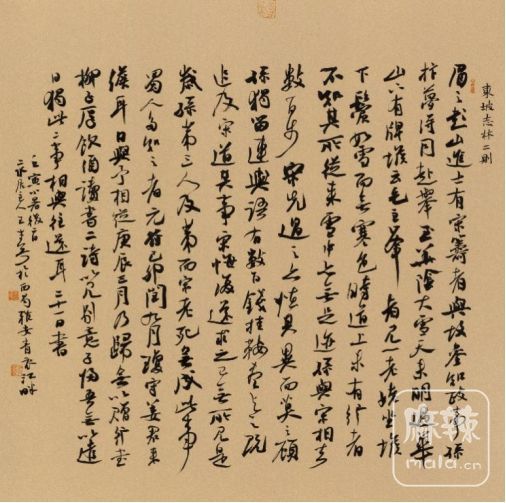 東坡志林二則
眉之彭山進士有宋籌者與故參知政事孫
抃夢得同赴舉至華陰大雪天未明過華
山下有牌堠云毛女峯者見一老姥坐堠
下鬢如雪而無寒色時道上未有行者
不知其所從來雪中亦無足迹孫與宋相去
數百步宋先過之亦怪其異而莫之顧
孫獨留連與語有數百錢挂鞍盡與之既
追及宋道其事宋悔復還求之已無所見是
歲孫第三人及第而宋老死無成此事
蜀人多知之者元符己卯閏九月瓊守姜君來
儋耳日與予相從庚辰三月乃歸無以贈行書
柳子厚飲酒讀書二詩以見別意子歸吾無以遣
日獨此二事相與往還耳二十一日書
壬寅小暑後
於西蜀雅安青衣江畔
麻辣
mala.cn